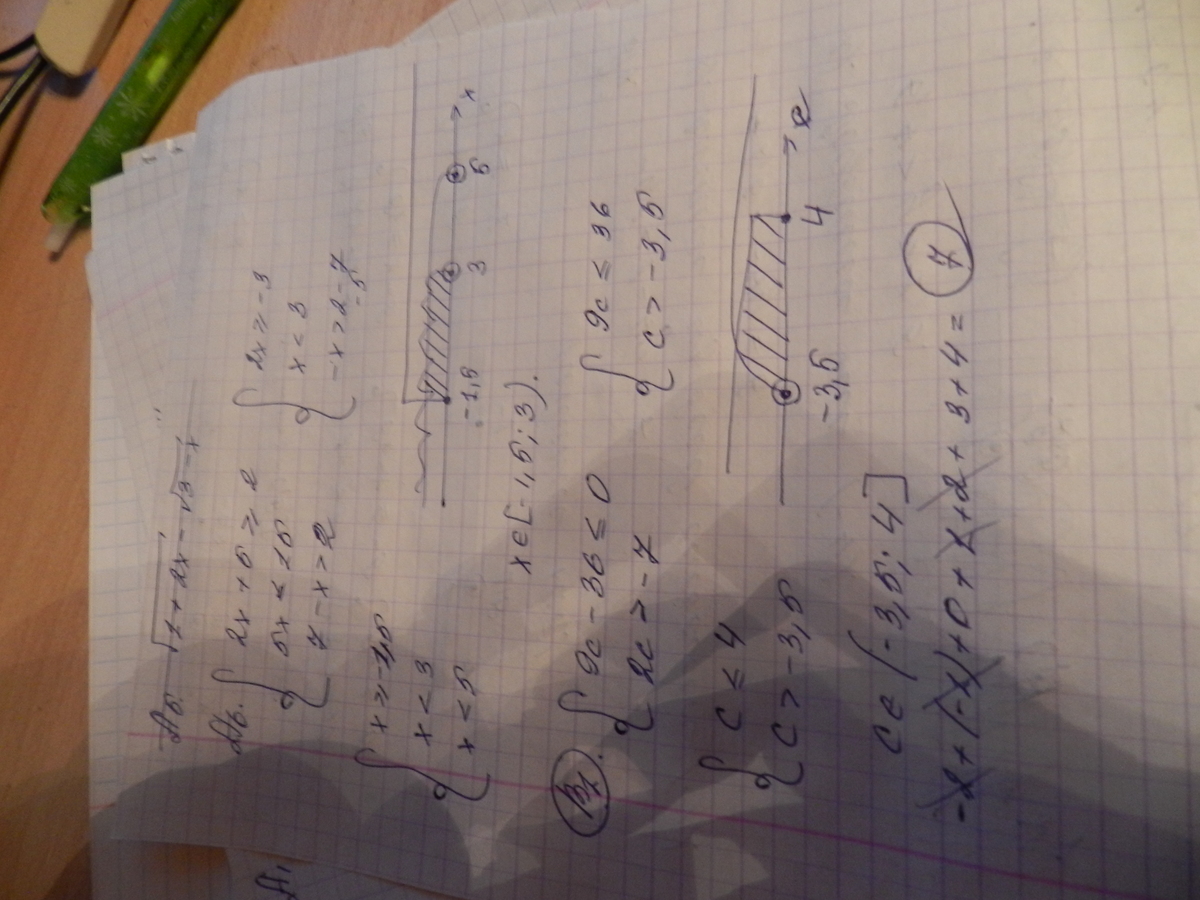 А5. √1+2x - √3-x
А6. { 2x+5 ≥ 2
5x < 15
7-x > 2
{ 2x ≥ -3
x < 3
-x > 2-7
-5
{ x ≥ -1,5
x < 3
x < 5
-1,5 3 5 x
x ∈ [-1,5; 3).
В1. { 9c - 36 ≤ 0
2c > -7
{ 9c ≤ 36
c > -3,5
{ c ≤ 4
c > -3,5
-3,5 4
c ∈ (-3,5; 4]
-2+(-1)+0+1+2+3+4= 7
А1